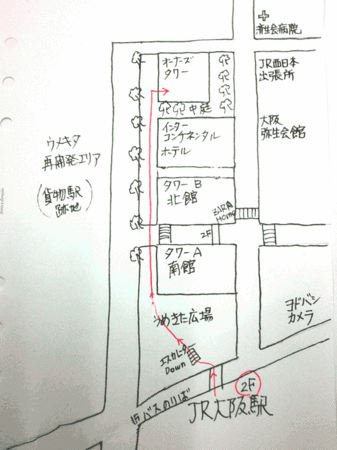 済生会病院
オーナーズ
タワー
JR西日本
出張所
中庭
インター
コンチネンタル
ホテル
大阪
弥生会館
ウメキタ
再開発エリア
(貨物駅
跡地)
タワーB
北館
ZARA
HOME
2F
タワーA
南館
うめきた広場
ヨドバシ
カメラ
エスカレーター
Down
2F
旧バスのりば
JR大阪駅